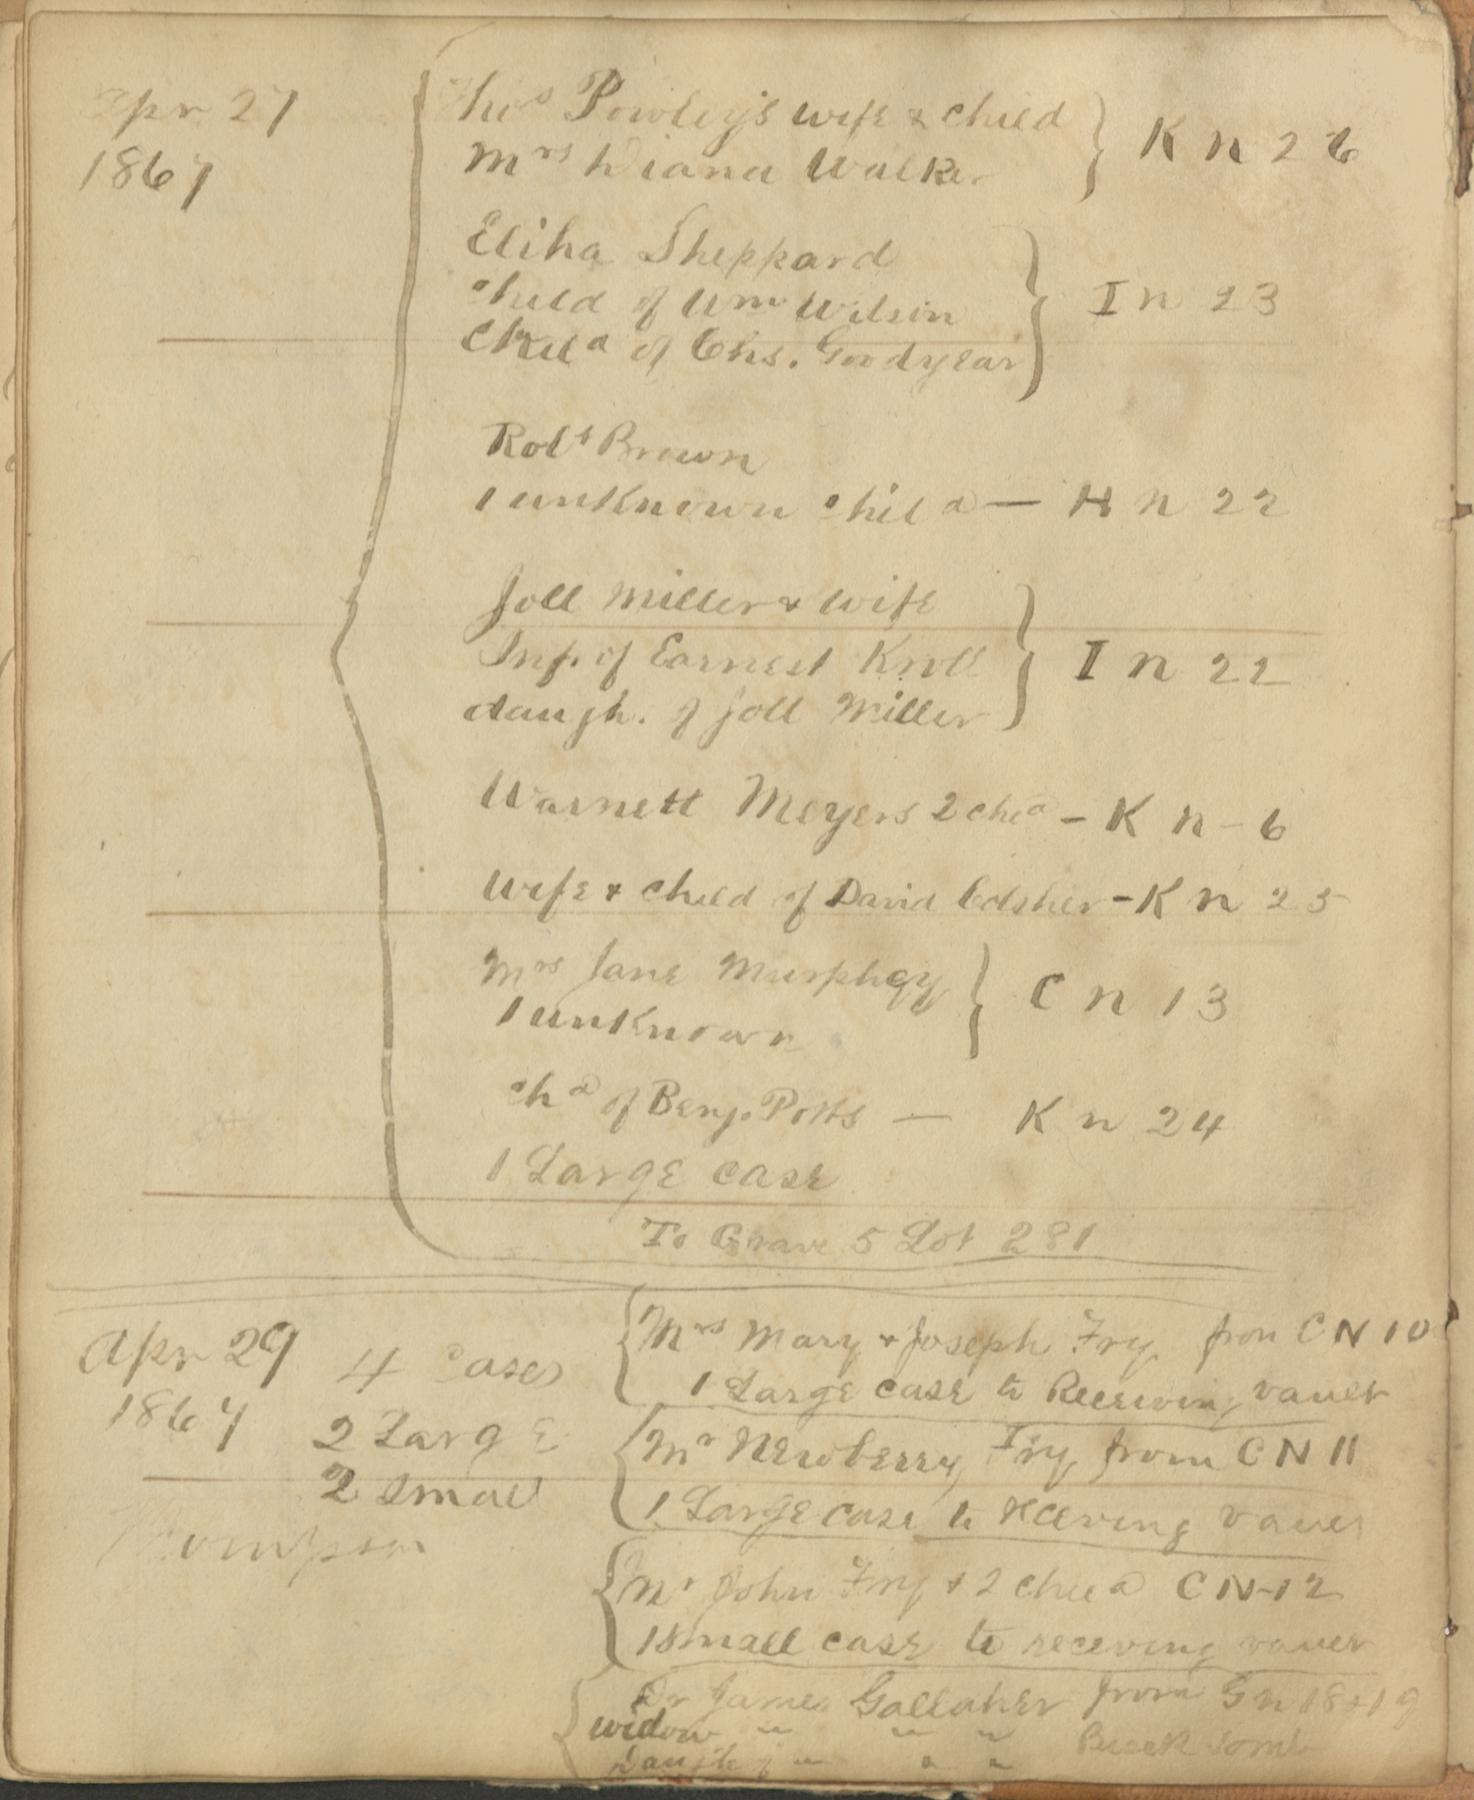 Apr 27
1867
Thos Powley's wife & child
Mrs Diana Walker } K n 26
Eliha Sheppard
child of Wm Wilson } I n 23
Child of Chs. Goodyear
Robt Brown
1 unknown child — H n 22
Joll Miller & wife
Inf. of Earnest Knoll } I n 22
daugh. of Joll Miller
Warnett Meyers 2 chid - K n - 6
wife & child of David Colsher - K n 25
Mrs Jane Murphey } C n 13
1 unknown
chd of Benj. Potts — K n 24
1 Large case
To Grave 5 Lot 281
Apr 29
1867
4 Cases
2 Large
2 small
Thompson
Mrs Mary & Joseph Fry from C N 10
1 Large case to Receiving vault
Mr Newberry Fry from C N 11
1 Large case to receving vault
Mr John Fry & 2 child C N-12
1 small case to receving vault
Dr James Gallaher from G n 18 & 19
widow " " " Brick tomb
Daugh of " " "